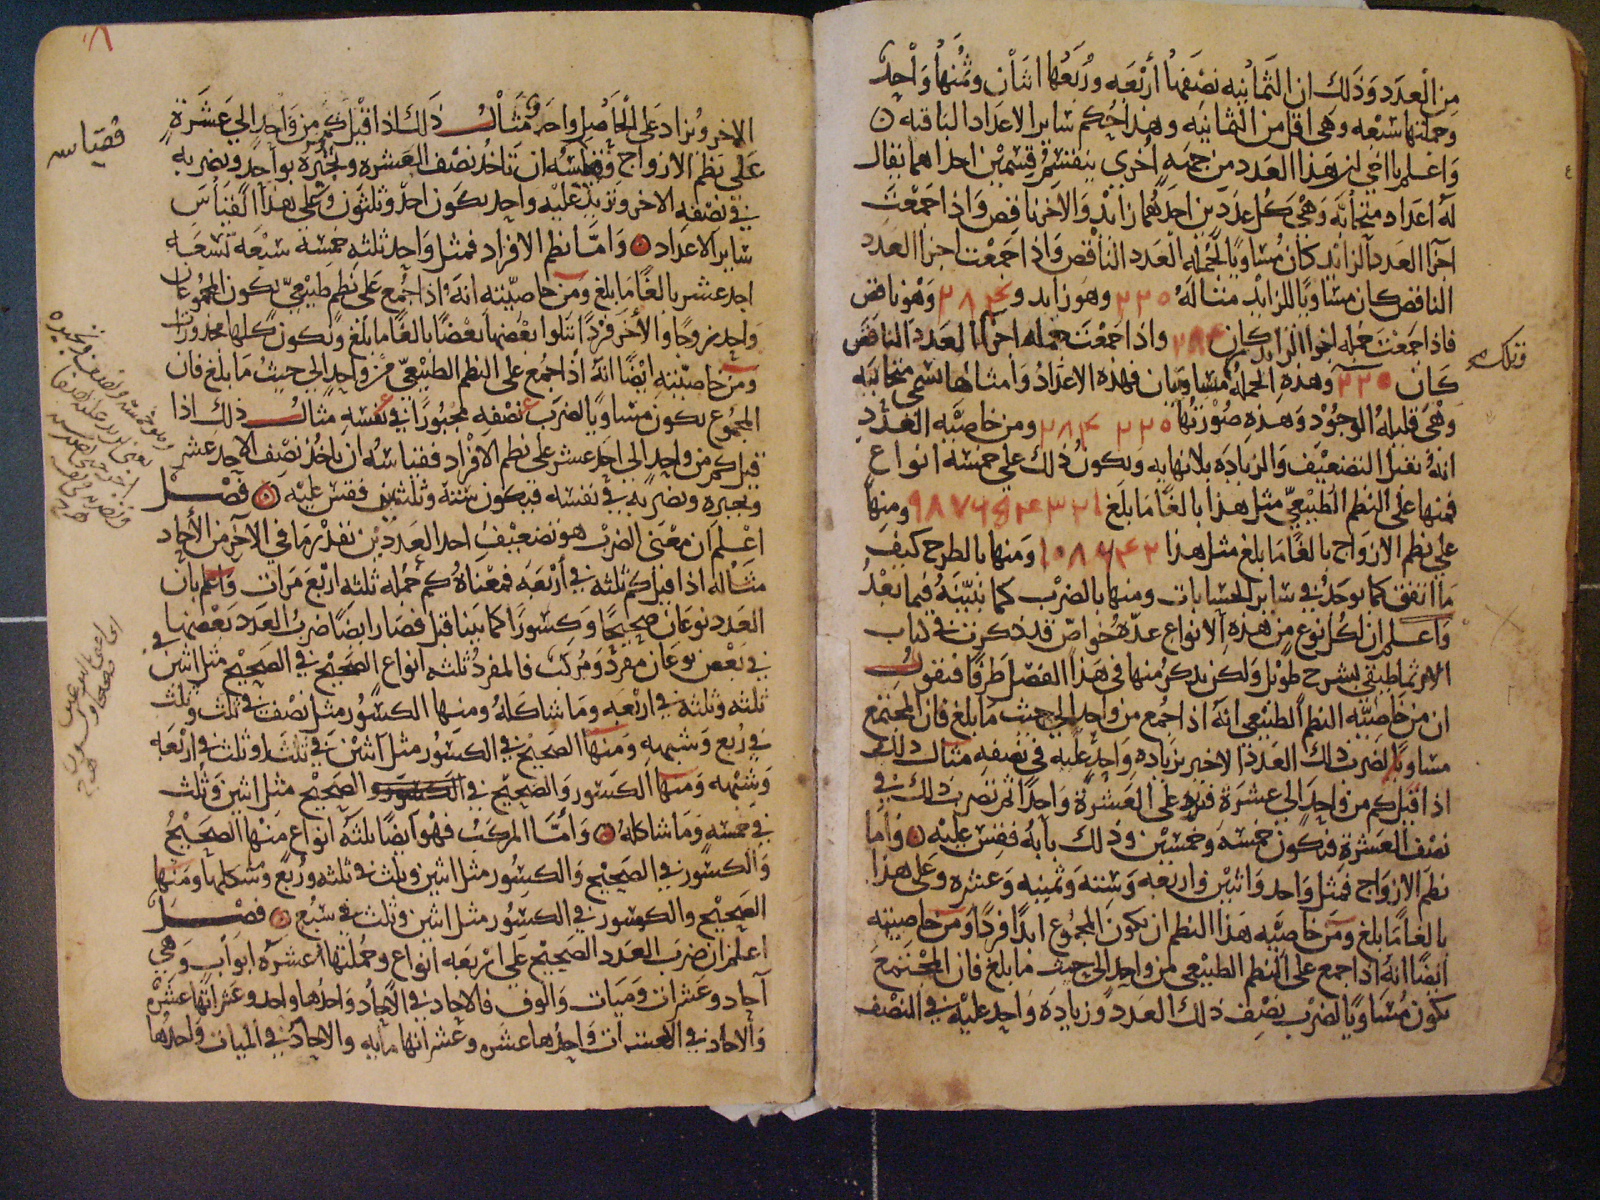 من العدد وذلك ان الثمانيه نصفها أربعه وربعها اثنان وثمنها واحد
وجملتها سبعه وهى اقل من الثمانيه وهذا حكم ساير الاعداد الناقصه
واعلم يااخى ان هذا العدد من جهة أخرى ينقسم قسمين احداهما يقال
له اعداد متحابه وهى كل عددين احدهما زايد والاخر ناقص واذا اجمعت
اجزا العدد الزايد كان مساويا لجمله العدد الناقص واذا جمعت اجزا العدد
الناقص كان مساويا للزايد مثاله ٢٢٠ وهو زايد و ٢٨٤ وهو ناقص
فاذا جمعت جمله اجزا الزايد كان ٢٨٤ واذا جمعت جمله اجزا العدد الناقص
كان ٢٢٠ وهذه الجمله متساويان فهذه الاعداد وامثالها تسمى متحابه
وهى قليله الوجود وهذه صورتها ٢٢٠ ٢٨٤ ومن خاصيه العدد
انه يقبل التضعيف والزياده بلانهايه ويكون ذلك على خمسه انواع
فمنها على النظم الطبيعى مثل هذا بالغا مابلغ ١ ٢ ٣ ٤ ٥ ٦ ٧ ٨ ٩ ومنها
على نظم الازواج بالغا مابلغ مثل هذا ٢ ٤ ٦ ٨ ١٠ ومنها بالطرح كيف
ما اتفق كما يوجد في ساير الحسابات ومنها بالضرب كما نبينه فيما بعد
واعلم ان لكل نوع من هذه الانواع عدة خواص قد ذكرت فى كتاب
الارثماطيقى بشرح طويل ولكن نذكر منها فى هذا الفصل طرفا فنقول
ان من خاصيه النظم الطبيعى انه اذا جمع من واحد الى حيث مابلغ فان المجتمع
مساويا لضرب ذلك العدد الاخير بزياده واحد عليه في نصفه مثال ذلك
اذا قيل كم من واحد الى عشرة فزد على العشرة واحدا ثم تضرب ذلك في
نصف العشرة فيكون خمسه وخمسين وذلك بابه فقس عليه واما
نظم الازواج فمثل واحد واثنين واربعه وسته وثمنيه وعشره وعلى هذا
بالغا مابلغ ومن خاصيه هذا النظم ان يكون المجموع ابدا فردا ومن خاصيته
ايضا انه اذا جمع على النظم الطبيعى من واحد الى حيث مابلغ فان المجتمع
يكون مساويا لضرب نصف ذلك العدد وزيادة واحد عليه في النصف
الاخر ويزاد على الحاصل واحد ومثال ذلك اذا قيل كم من واحد الى عشرة
على نظم الازواج فقياسه ان تاخذ نصف العشره وتجبره بواحد وتضربه
في نصفه الاخر وتزيد عليه واحد يكون احد وثلثون وعلى هذا القياس
ساير الاعداد واما نظم الافراد فمثل واحد ثلثه خمسة سبعه تسعه
احد عشر بالغا مابلغ ومن خاصيته انه اذا جمع على نظم طبيعى يكون المجموعان
واحد زوجا والأخر فردا يتلوا بعضها بعضا بالغا مابلغ وتكون كلها مجذورات
ومن خاصيته ايضا انه اذا جمع على النظم الطبيعى من واحد الى حيث مابلغ فان
المجموع يكون مساويا لضرب نصفه مجبورا في نفسه مثال ذلك اذا
قيل كم من واحد الى احد عشر على نظم الافراد فقياسه ان تاخذ نصف الاحد عشر
وتجبره وتضربه في نفسه فيكون ستة وثلثين فقس عليه فصل
اعلم ان معنى الضرب هو تضعيف احد العددين بقدر ما في الآخر من الآحاد
مثاله اذا قيل كم ثلثه في أربعه فمعناه كم جمله ثلثه اربع مرات واعلم بان
العدد نوعان صحيحا وكسورا كما بينا قبل فصار ايضا ضرب العدد بعضها
في بعض نوعان مفرد ومركب فالمفرد ثلثه انواع الصحيح في الصحيح مثل اثنين في
ثلثه وثلثه في اربعه وما شاكله ومنها الكسور مثل نصف في ثلث وثلث
في ربع وشبهه ومنها الصحيح في الكسور مثل اثنين في ثلث او ثلث في اربعه
وشبهه ومنها الكسور والصحيح في الصحيح مثل اثنين وثلث
في خمسه وما شاكله واما المركب فهو ايضا ثلثه انواع منها الصحيح
والكسور في الصحيح والكسور مثل اثنين وثلث في ثلثه وربع ومشكلها ومنها
الصحيح والكسور في الكسور مثل اثنين وثلث في سبع فصل
اعلم ان ضرب العدد الصحيح على اربعه انواع وجملتها عشرة ابواب وهي
آحاد وعشرات وميات والوف فالاحاد في الآحاد واحدها واحد وعشراتها عشرة
والاحاد في العشرات واحدها عشره وعشراتها مايه والاحاد في الميات واحدها